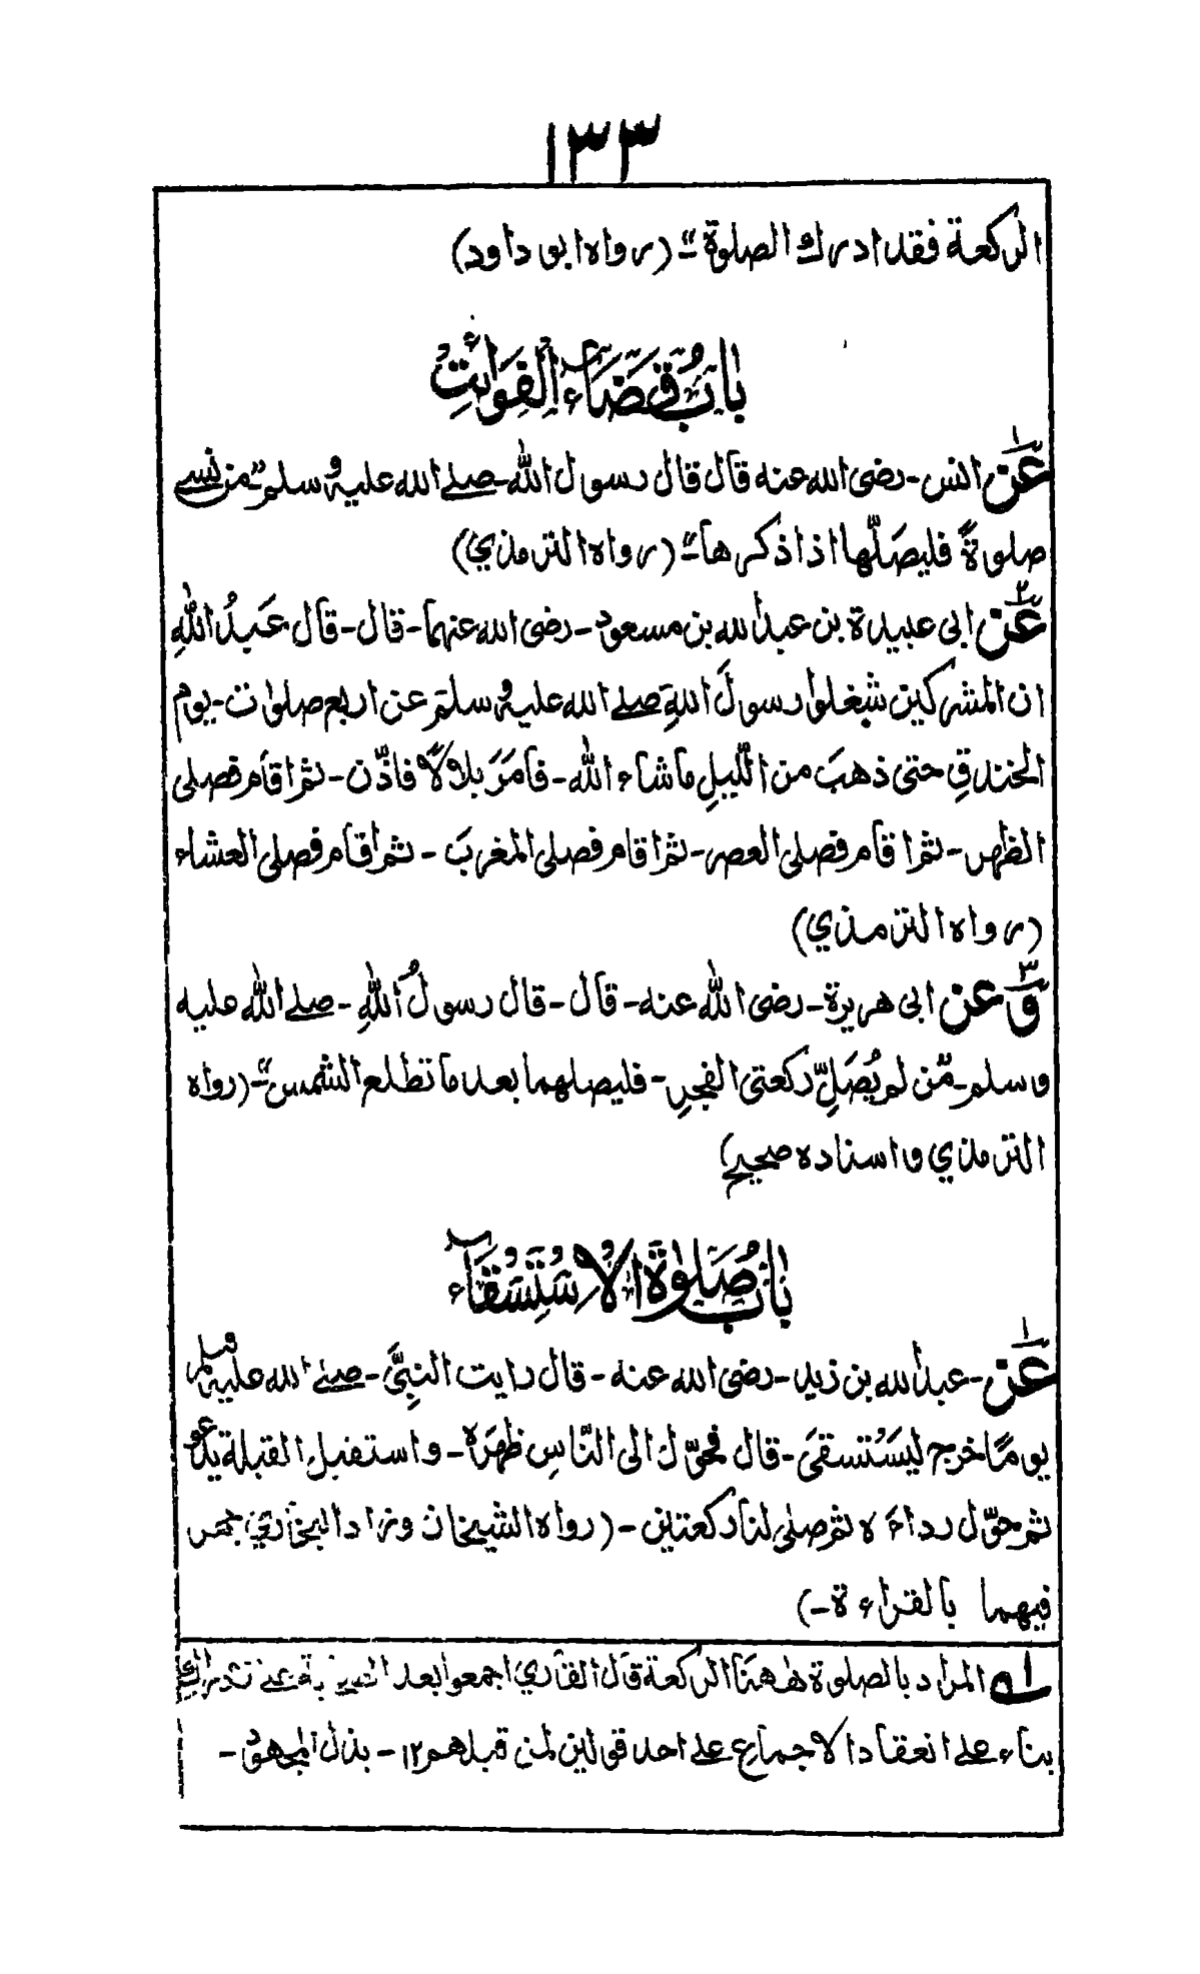 ١٣٣
الركعة فقد ادرك الصلوة"- (رواه ابو داود)
بَابُ قَضَآءِ الْفَوَائِتِ
١ عَن انس- رضى الله عنه قال قال رسول الله- صلے الله عليه وسلم "من نسے
صلوةً فليصلّها اذا ذكرها"- (رواه الترمذي)
٢ عَن ابى عبيدة بن عبد الله بن مسعود- رضى الله عنهما- قال- قال عَبدُ اللهِ
ان المشركين شغلوا رسولَ اللهِ صلے الله عليه وسلم عن اربع صلوات- يوم
الخندقِ حتى ذهبَ من اللّيلِ ما شاء الله- فأمَرَ بلالاً فاذّن- ثم اقام فصلى
الظهر- ثم اقام فصلى العصر- ثم اقام فصلى المغربَ- ثم اقام فصلى العشاء
(رواه الترمذي)
٣ وَ عن ابى هريرة- رضى الله عنه- قال- قال رسولُ اللهِ- صلے الله عليه
وسلم- "مَن لم يُصَلِّ ركعتى الفجرِ- فليصلهما بعد ما تطلع الشمس"- (رواه
الترمذي واسناده صحيح)
بَابُ صَلٰوةِ الْاِسْتِسْقَآءِ
١ عَن- عبد الله بن زيد- رضى الله عنه- قال رايت النبِيَّ- صلے الله عليه وسلم
يومًا خرج ليَسْتسقىَ- قال فحوّل الى النّاسِ ظهرَه- واستقبل القبلة يدعو
ثم حوّل رداءَه ثم صلى لنا ركعتين- (رواه الشيخان وزاد البخاري جهر
فيهما بالقراءة-)
١ـه المراد بالصلوة هٰهنا الركعة قال القاري اجمعوا بعد
بناء على انعقاد الاجماع على احد قولين لمن قبلهم ١٢- بذل المجهود-